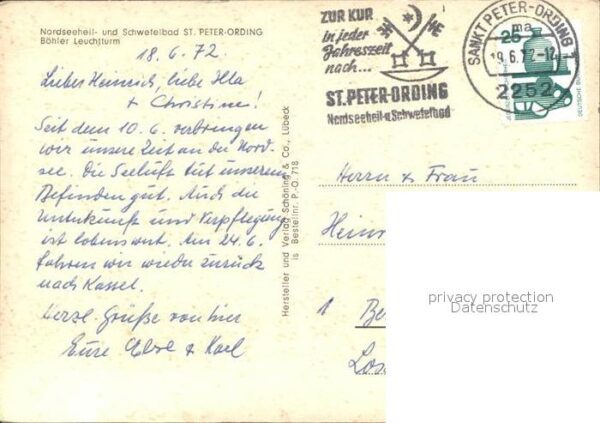 Nordseeheil- und Schwefelbad ST. PETER-ORDING
Böhler Leuchtturm
18. 6. 72.
Lieber Heinrich, liebe Illa
+ Christine!
Seit dem 10. 6. verbringen
wir unsere Zeit an der Nord-
see. Die Seeluft tut unserem
Befinden gut. Auch die
Unterkunft und Verpflegung
ist lobenswert. Am 24. 6.
fahren wir wieder zurück
nach Kassel.
Herzl. Grüße von hier
Eure + Karl
Hersteller und Verlag Schöning & Co., Lübeck
Bestellnr. P.-O. 718
ZUR KUR
in jeder
Jahreszeit
nach...
ST. PETER-ORDING
Nordseeheil-u Schwefelbad
SANKT PETER-ORDING 1
ma
19.6.72-12
2252
25
DEUTSCHE
Herrn + Frau
Heinr
1 Be
privacy protection
Datenschutz